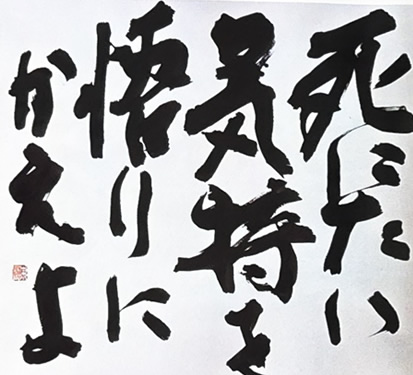 死にたい
気持を
悟りに
かえよ